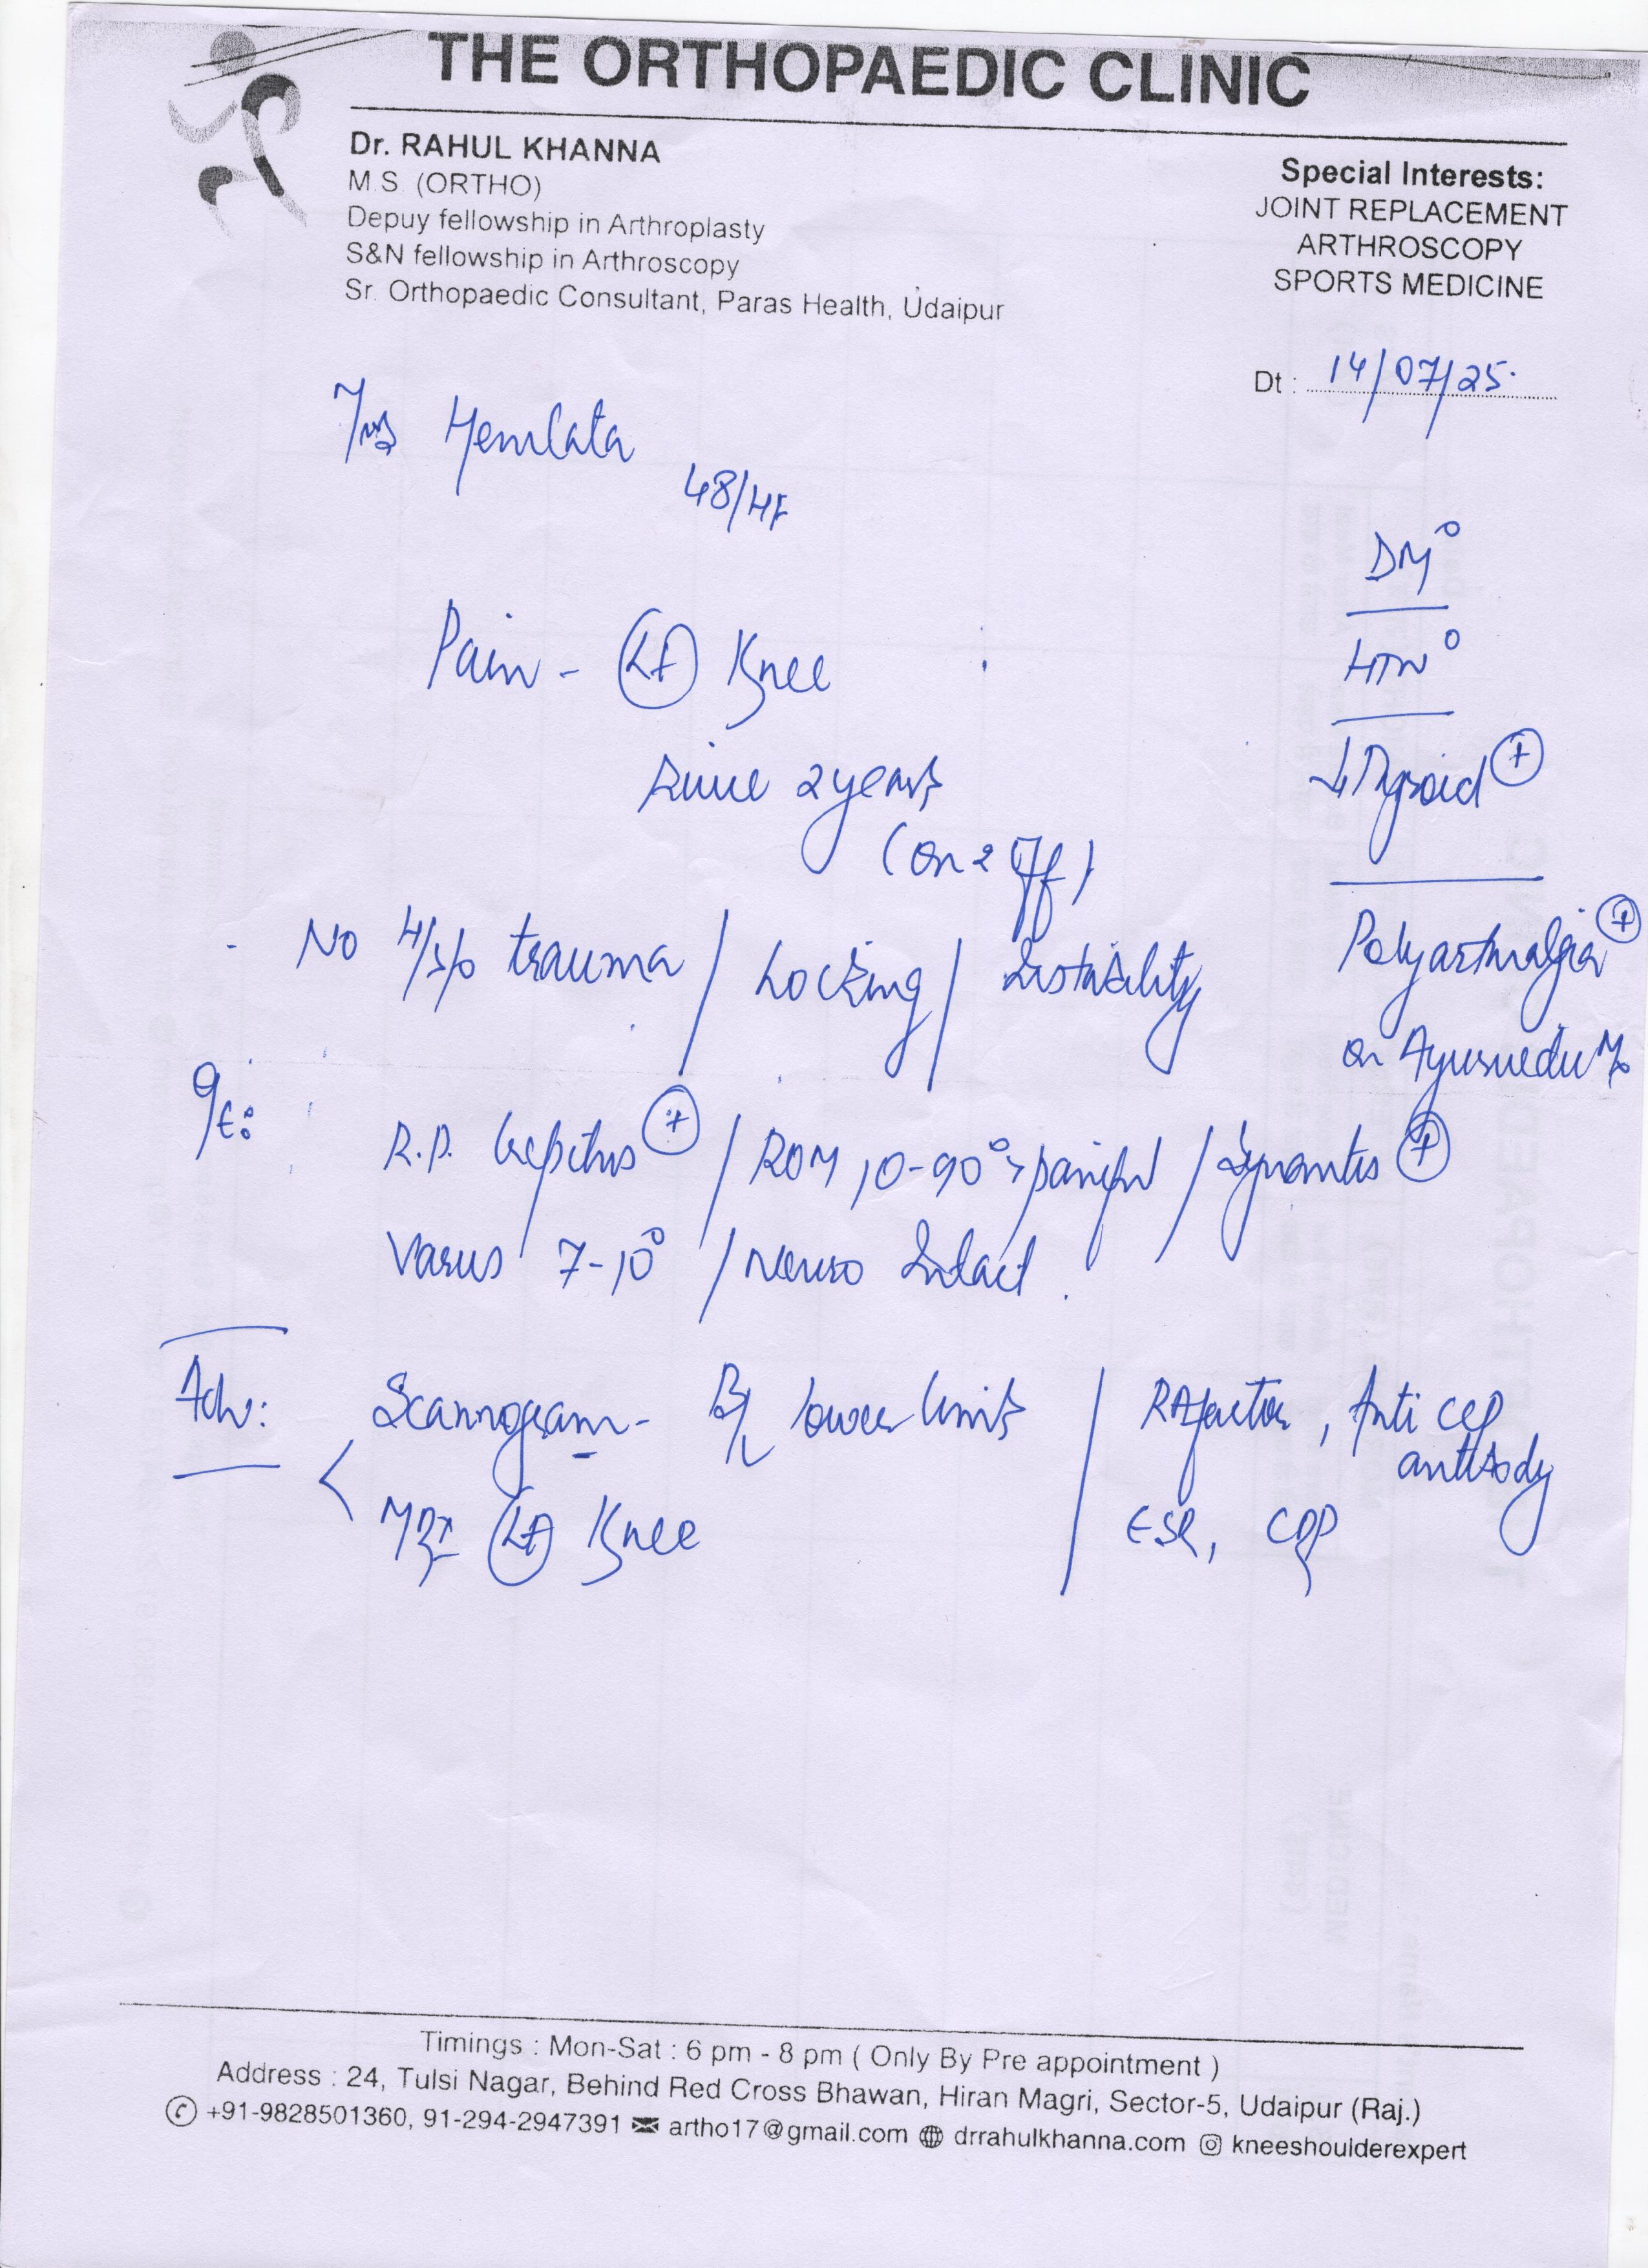 THE ORTHOPAEDIC CLINIC
Dr. RAHUL KHANNA
M.S. (ORTHO)
Depuy fellowship in Arthroplasty
S&N fellowship in Arthroscopy
Sr. Orthopaedic Consultant, Paras Health, Udaipur
Special Interests:
JOINT REPLACEMENT
ARTHROSCOPY
SPORTS MEDICINE
Dt : 14/07/25.
Mrs Hemlata
48/HF
DM°
HTN°
↓Thyroid ⊕
Polyarthralgia ⊕
on Ayurvedic
Pain - Lt Knee
since 2 years
(on & off)
- No H/s/o trauma / Locking / Instability
O/E:
R.P. Crepitus ⊕ / ROM 10-90° painful / Synovitis ⊕
Varus 7-10° / Neuro Intact.
Adv:
Scannogram - B/L lower limbs
MRI Lt Knee
RA factor, Anti CCP
antibody
ESR, CRP
Timings : Mon-Sat : 6 pm - 8 pm ( Only By Pre appointment )
Address : 24, Tulsi Nagar, Behind Red Cross Bhawan, Hiran Magri, Sector-5, Udaipur (Raj.)
+91-9828501360, 91-294-2947391 artho17@gmail.com drrahulkhanna.com kneeshoulderexpert